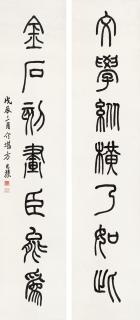 文學縱橫乃如此
金石刻畫臣能為
戊辰二月介堪方巖